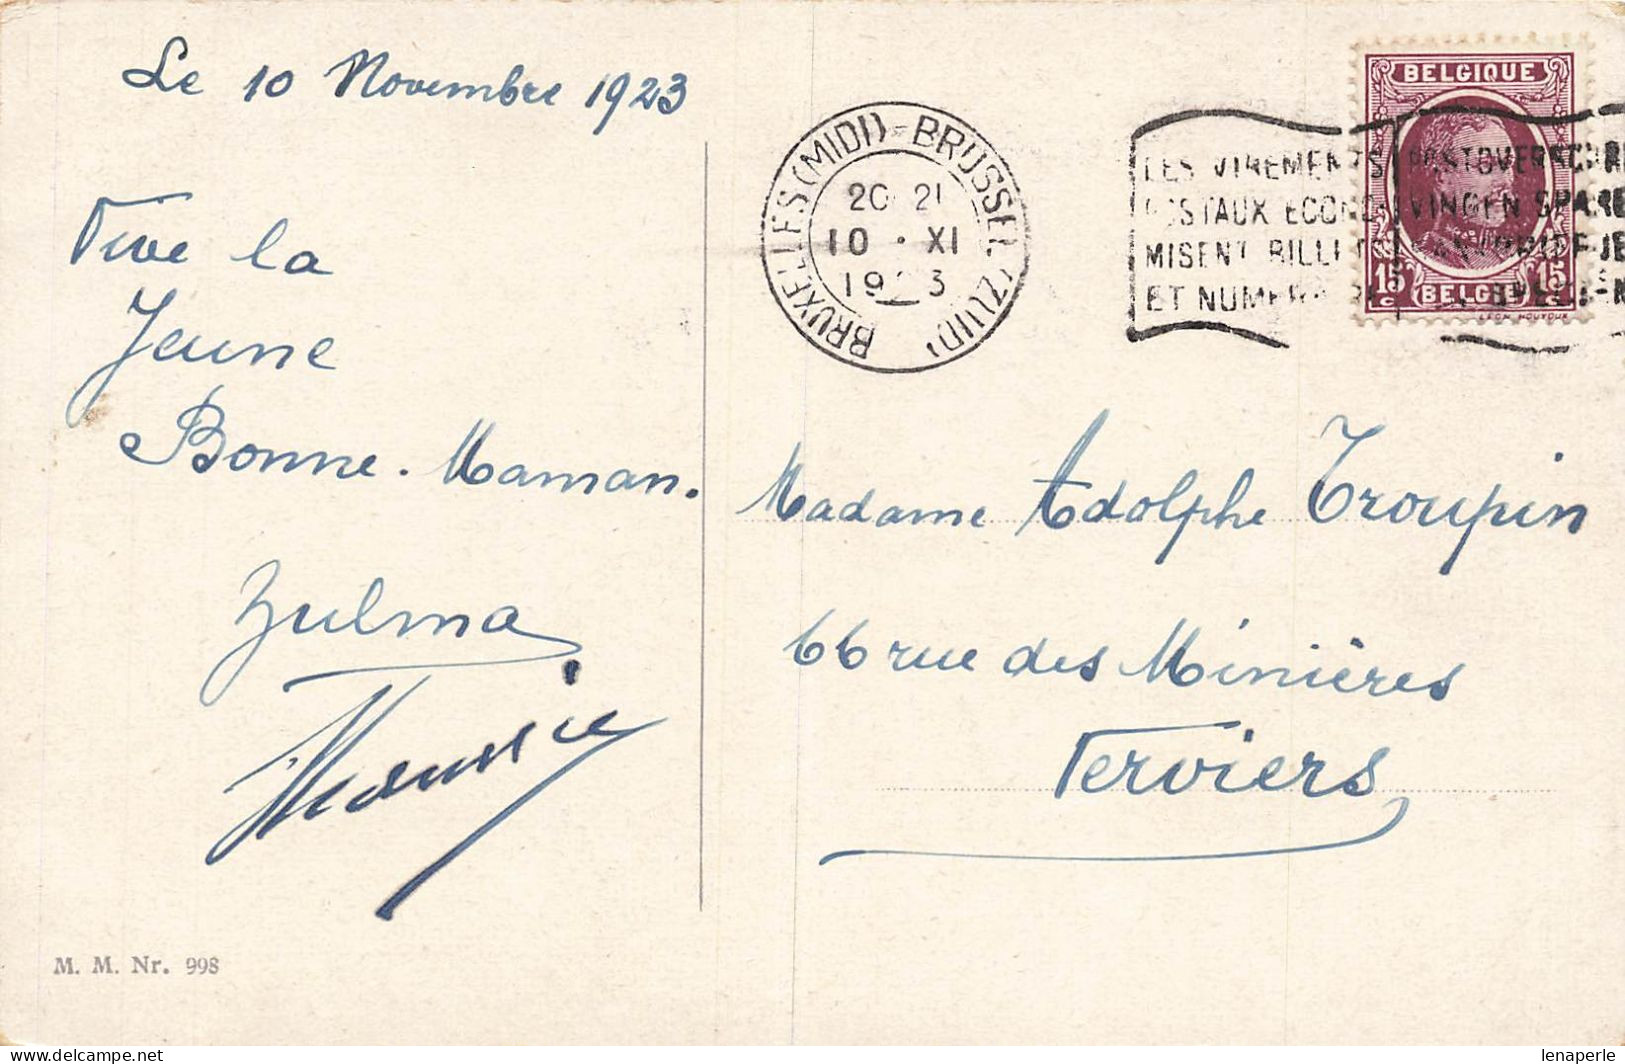 Le 10 Novembre 1923
Vive la
Jeune
Bonne-Maman.
Zulma
Maurice
M. M. Nr. 998
BRUXELLES (MIDI) - BRUSSEL (ZUID)
20 21
10 • XI
1923
LES VIREMENTS
POSTAUX ECONO-
MISENT BILLETS
ET NUMERAIRE
POSTOVERSCHRI
VINGEN SPARE
BELGIQUE
15 c
BELGIË
15 c
LEON HOUYOUX
Madame Adolphe Troupin
66 rue des Minières
Verviers
lenaperle